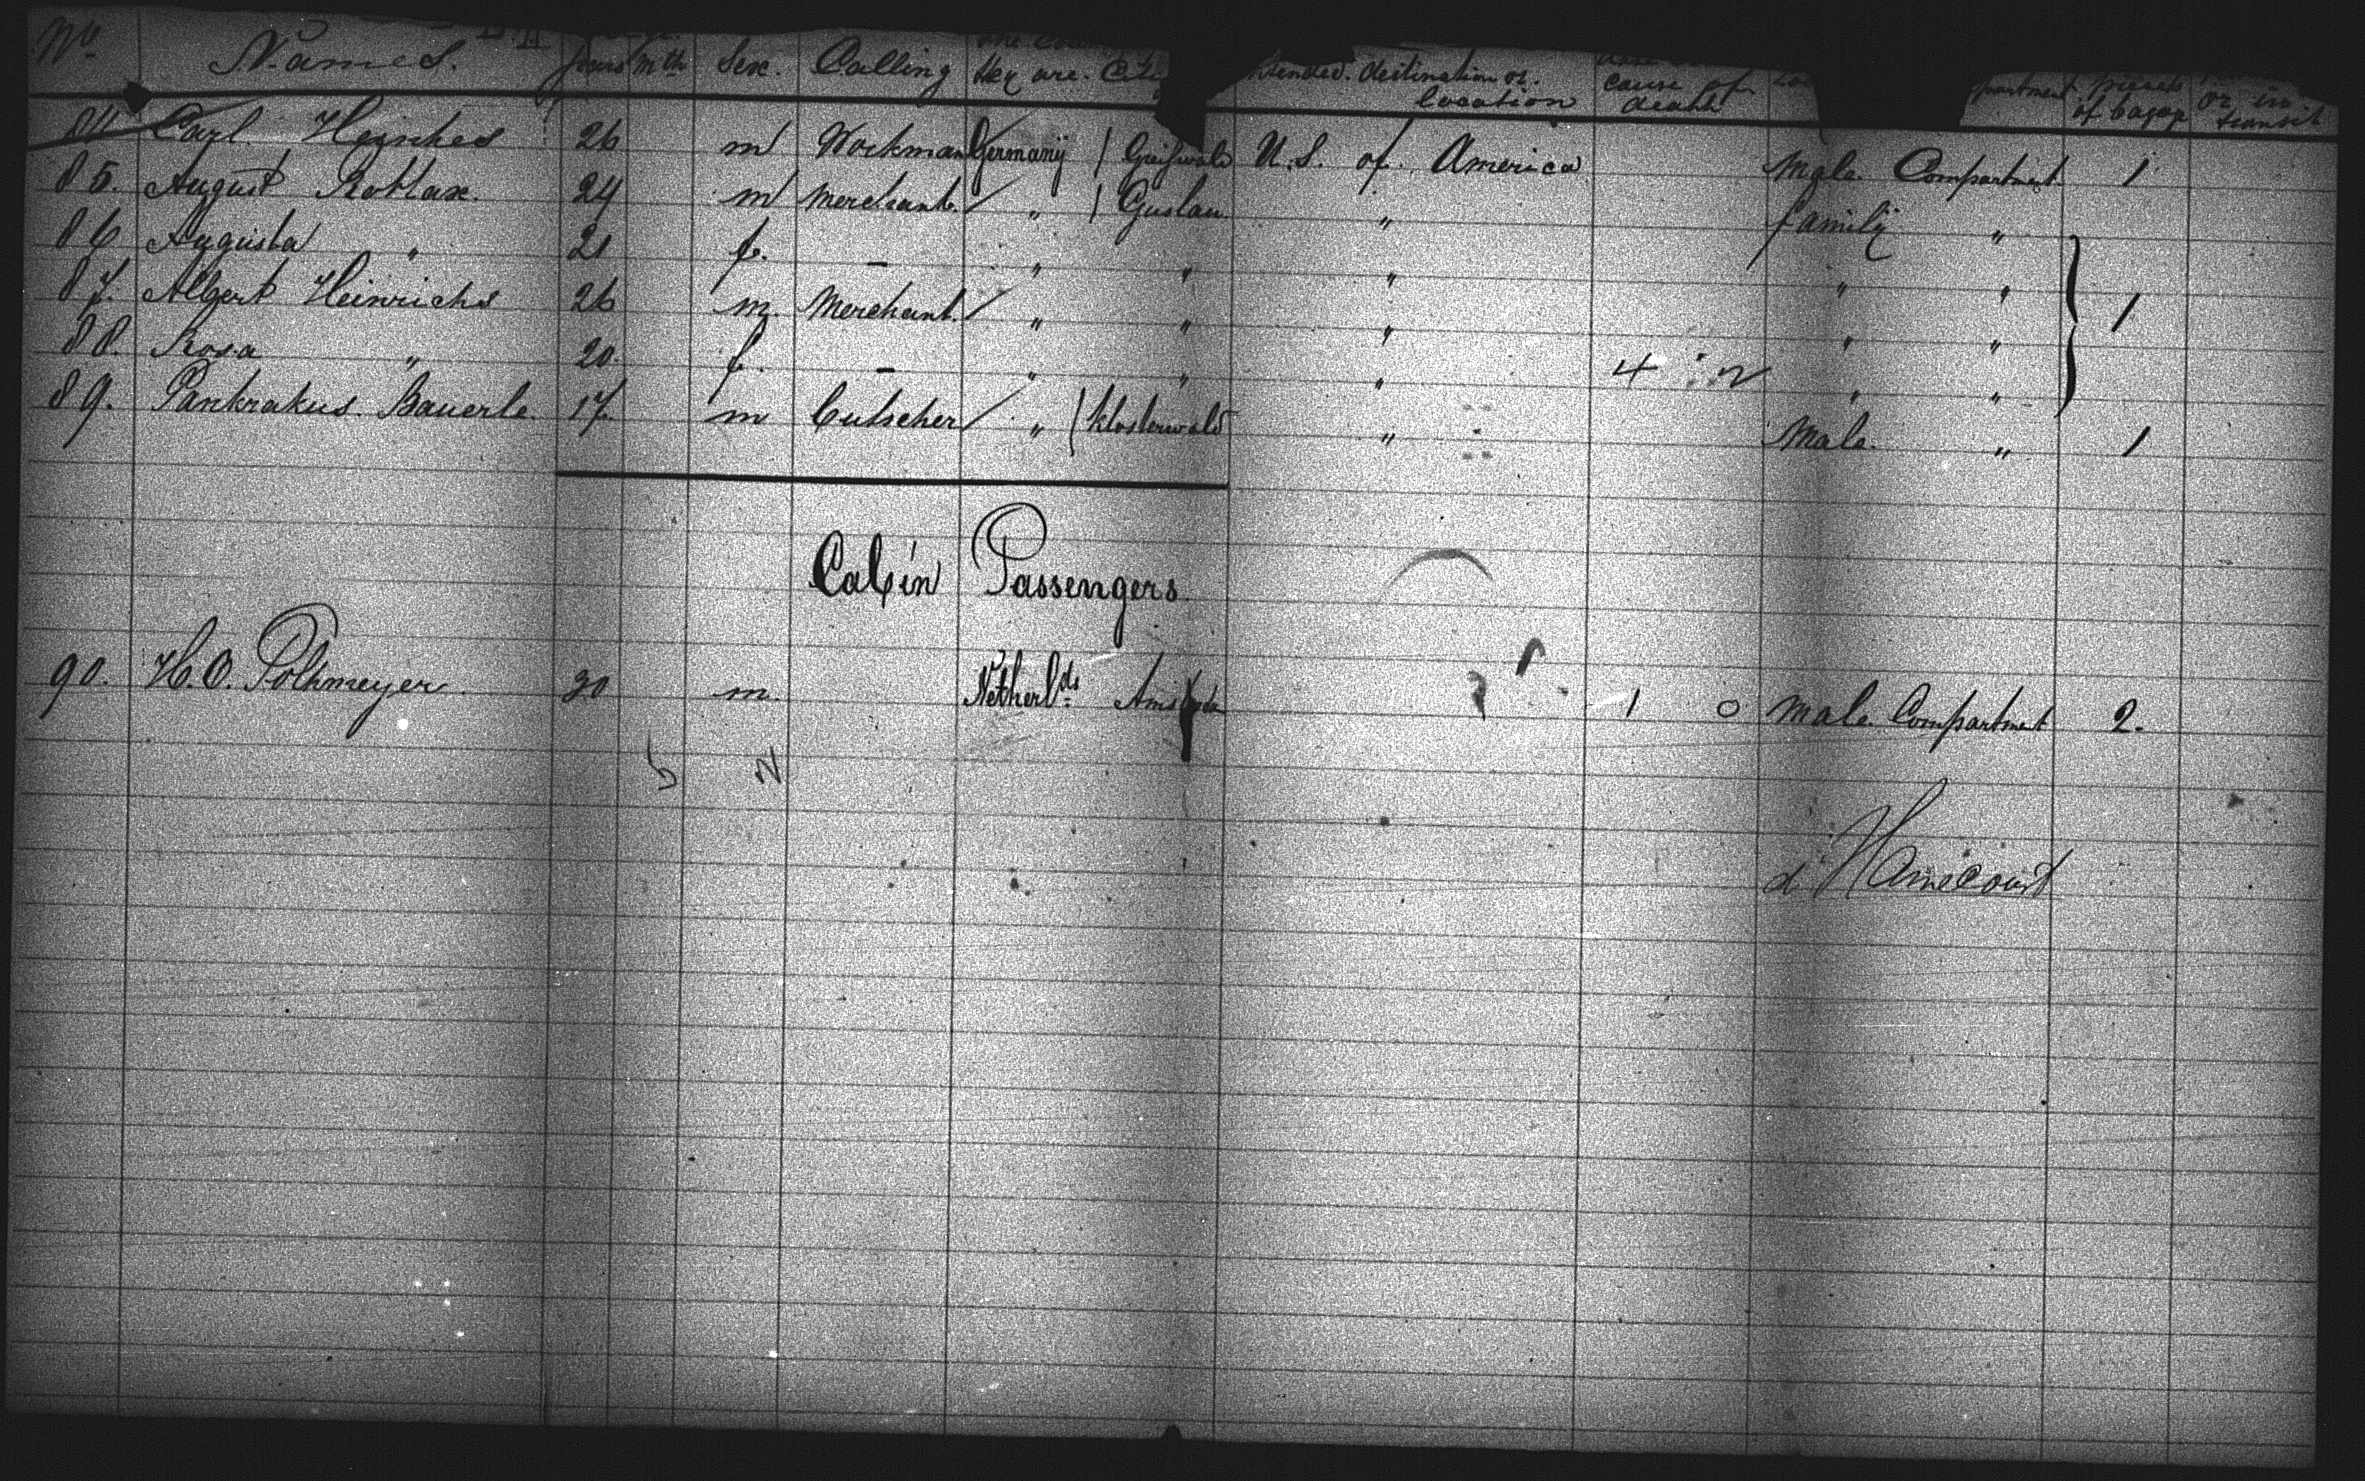 No Names. years Mth Sex. Calling they are. intended. destination or. location cause of death pieces of bagage or in transit
84 Carl Heinches 26 m Workman Germany / Greifswald U.S. of America Male Compartment 1
85. August Rottax. 24 m Merchant. " / Guslau " family "
86 Augusta " 21 f. – " " " " "
87. Albert Heinrichs 26 m. Merchant. " " " " " 1
88. Rosa " 20. f. – " " " 4 : 2 " "
89. Pankrakus Bauerle. 17. m Cutscher " / Klosterwald " Male. " 1
Cabin Passengers
90. H. O. Polkmeyer 30 m. Netherlds. 1 0 Male Compartment 2.
d'Hamecourt